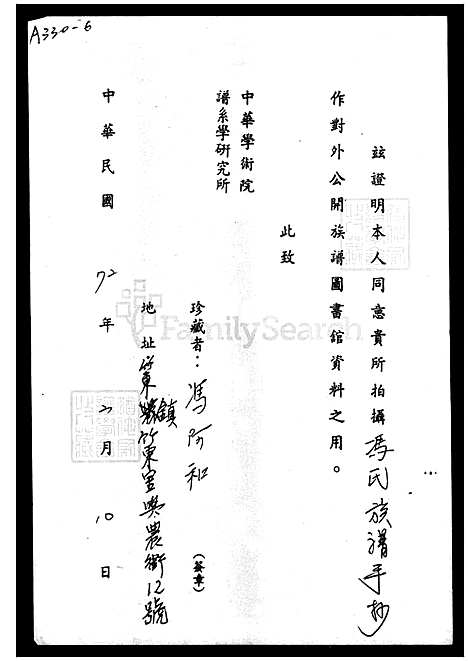 A330-6
茲證明本人同意貴所拍攝馮氏族譜手抄
作對外公開族譜圖書館資料之用。
此致
中華學術院
譜系學研究所
珍藏者：馮阿和（簽章）
地址竹東鎮竹東里興農街12號
中華民國72年2月10日
FamilySearch